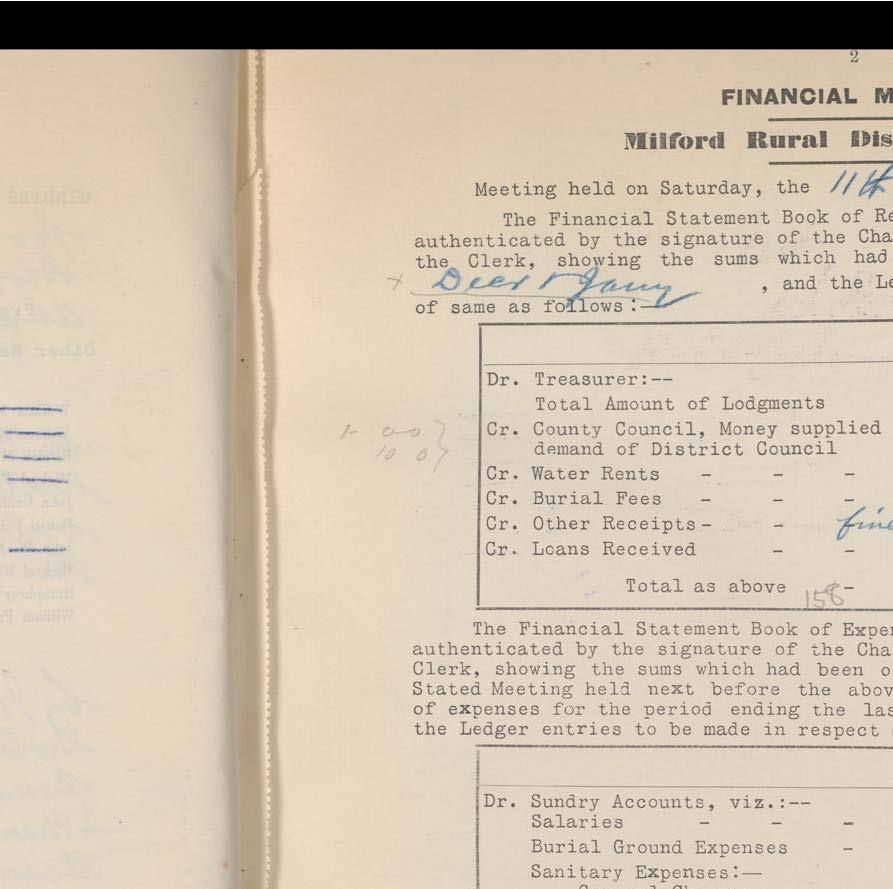 2
FINANCIAL M
Milford Rural Dis
Meeting held on Saturday, the 11th
The Financial Statement Book of Re
authenticated by the signature of the Cha
the Clerk, showing the sums which had
x Decr & Jany , and the Le
of same as follows:—
Dr. Treasurer:--
Total Amount of Lodgments
Cr. County Council, Money supplied
demand of District Council
Cr. Water Rents - - -
Cr. Burial Fees - - -
Cr. Other Receipts- - fine
Cr. Loans Received - -
Total as above 158 -
The Financial Statement Book of Expen
authenticated by the signature of the Cha
Clerk, showing the sums which had been o
Stated Meeting held next before the abov
of expenses for the period ending the las
the Ledger entries to be made in respect
Dr. Sundry Accounts, viz.:--
Salaries - - -
Burial Ground Expenses -
Sanitary Expenses:—